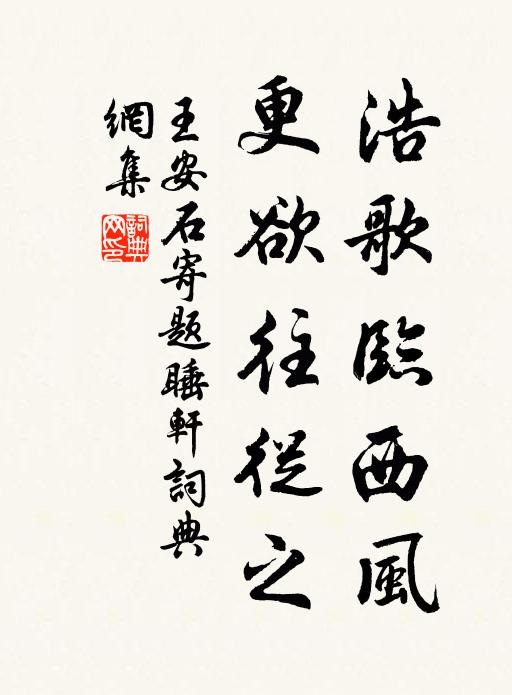 浩歌臨西風
更欲往從之
王安石寄題睡軒詞典
網集
詞典網印